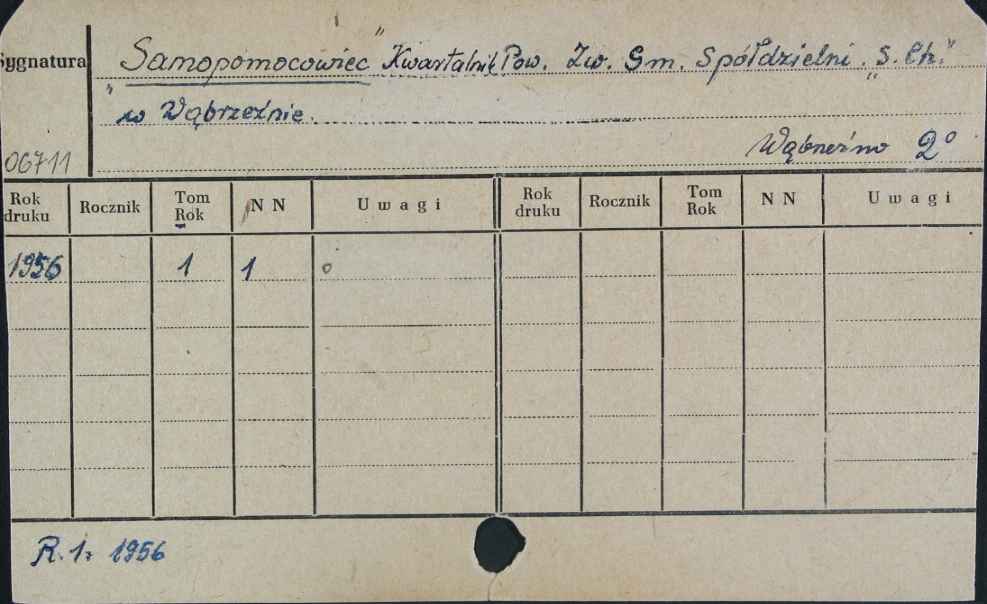 Sygnatura
„Samopomocowiec" Kwartalnik Pow. Zw. Gm. Spółdzielni „S. Ch."
w Wąbrzeźnie.
06711
Wąbrzeźno 2°
Rok druku Rocznik Tom Rok N N Uwagi Rok druku Rocznik Tom Rok N N Uwagi
1956 1 1 o
R. 1. 1956